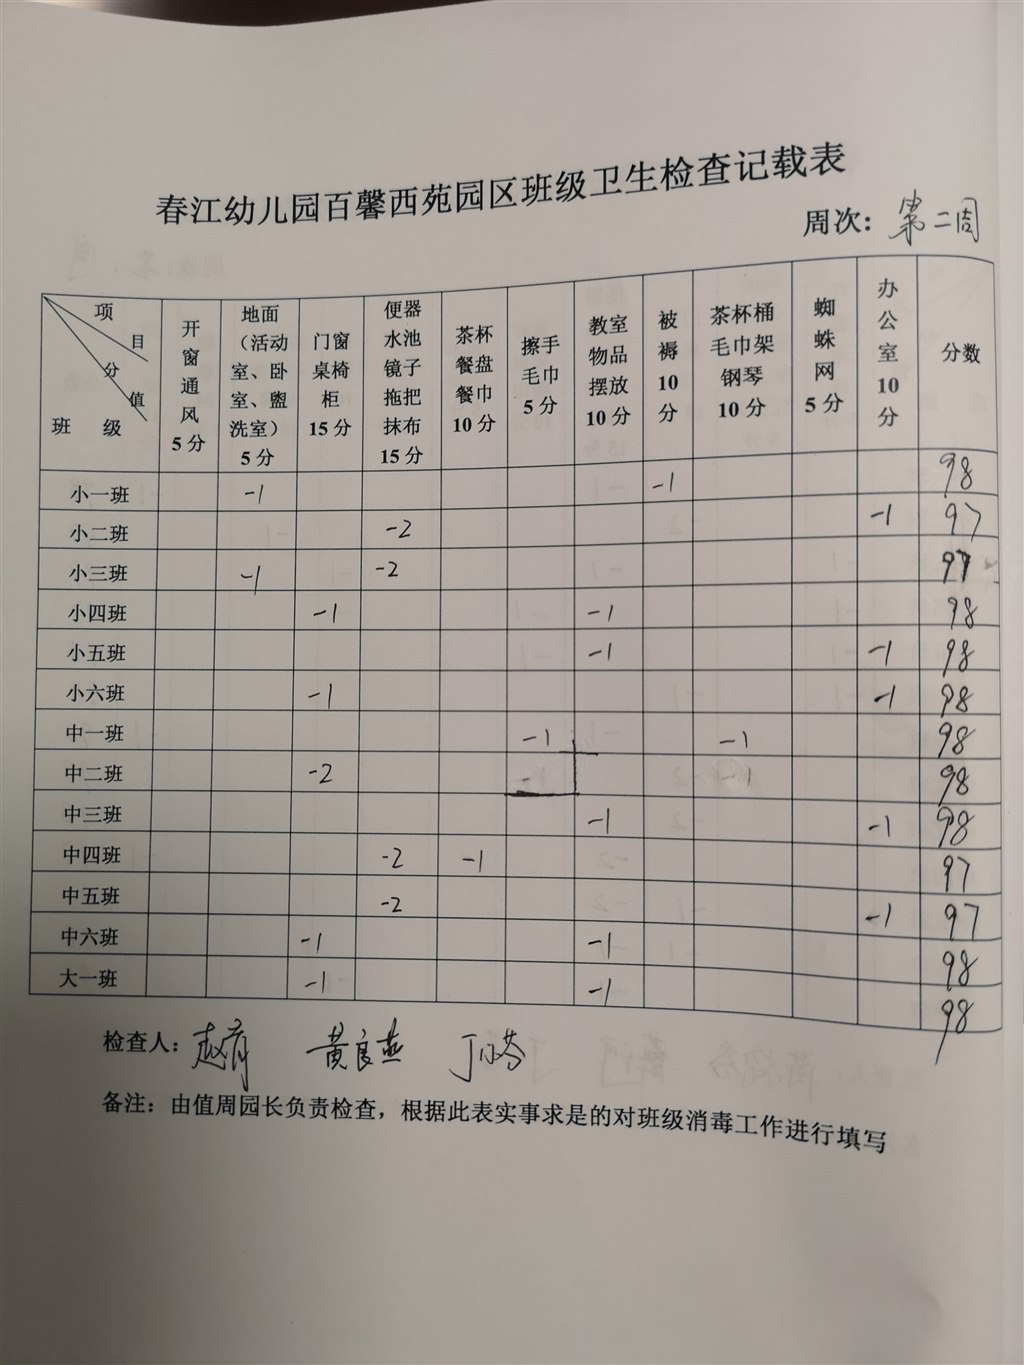 春江幼儿园百馨西苑园区班级卫生检查记载表
周次：第二周
项目 分值 班级 开窗通风5分 地面（活动室、卧室、盥洗室）5分 门窗桌椅柜15分 便器水池镜子拖把抹布15分 茶杯餐盘餐巾10分 擦手毛巾5分 教室物品摆放10分 被褥10分 茶杯桶毛巾架钢琴10分 蜘蛛网5分 办公室10分 分数
小一班 -1 -1 98
小二班 -2 -1 97
小三班 -1 -2 97
小四班 -1 -1 98
小五班 -1 -1 98
小六班 -1 -1 98
中一班 -1 -1 98
中二班 -2 98
中三班 -1 -1 98
中四班 -2 -1 97
中五班 -2 -1 97
中六班 -1 -1 98
大一班 -1 -1 98
检查人： 黄良燕
备注：由值周园长负责检查，根据此表实事求是的对班级消毒工作进行填写